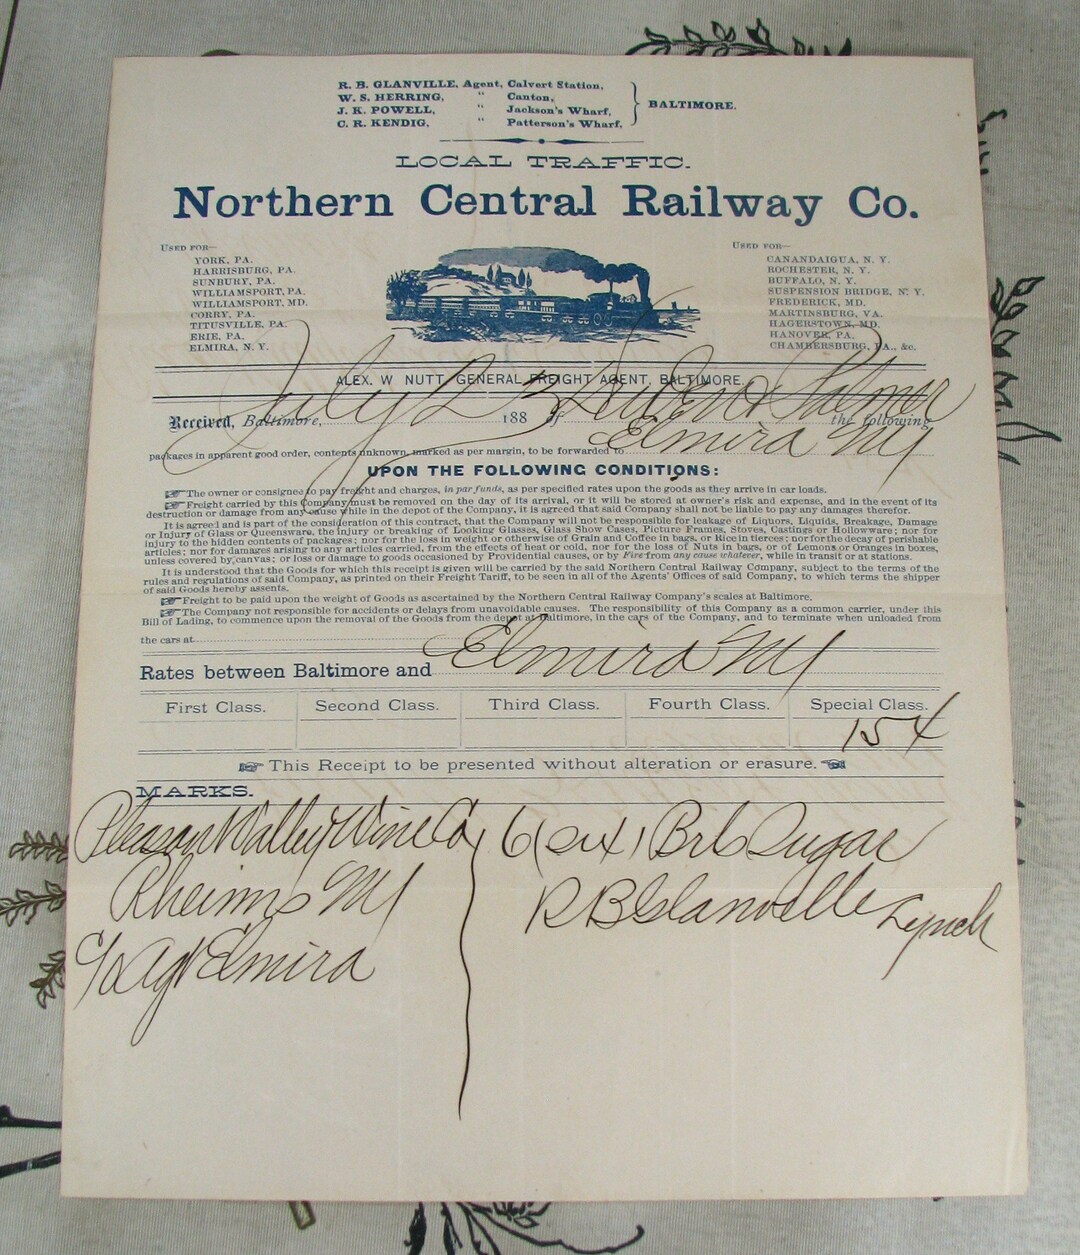 R. B. GLANVILLE, Agent, Calvert Station,
W. S. HERRING, " Canton,
J. K. POWELL, " Jackson's Wharf,
C. R. KENDIG, " Patterson's Wharf,
BALTIMORE.
LOCAL TRAFFIC.
Northern Central Railway Co.
USED FOR—
YORK, PA.
HARRISBURG, PA.
SUNBURY, PA.
WILLIAMSPORT, PA.
WILLIAMSPORT, MD.
CORRY, PA.
TITUSVILLE, PA.
ERIE, PA.
ELMIRA, N. Y.
USED FOR—
CANANDAIGUA, N. Y.
ROCHESTER, N. Y.
BUFFALO, N. Y.
SUSPENSION BRIDGE, N. Y.
FREDERICK, MD.
MARTINSBURG, VA.
HAGERSTOWN, MD.
HANOVER, PA.
CHAMBERSBURG, PA., &c.
ALEX. W NUTT, GENERAL FREIGHT AGENT, BALTIMORE.
Received, Baltimore, July 2 188 3 of & Palmer the following
packages in apparent good order, contents unknown, marked as per margin, to be forwarded to Elmira NY
UPON THE FOLLOWING CONDITIONS:
The owner or consignee to pay freight and charges, in par funds, as per specified rates upon the goods as they arrive in car loads.
Freight carried by this Company must be removed on the day of its arrival, or it will be stored at owner's risk and expense, and in the event of its
destruction or damage from any cause while in the depot of the Company, it is agreed that said Company shall not be liable to pay any damages therefor.
It is agreed and is part of the consideration of this contract, that the Company will not be responsible for leakage of Liquors, Liquids, Breakage, Damage
or Injury of Glass or Queensware, the injury or breaking of Looking Glasses, Glass Show Cases, Picture Frames, Stoves, Castings or Hollowware; nor for
injury to the hidden contents of packages; nor for the loss in weight or otherwise of Grain and Coffee in bags, or Rice in tierces; nor for the decay of perishable
articles; nor for damages arising to any articles carried, from the effects of heat or cold, nor for the loss of Nuts in bags, or of Lemons or Oranges in boxes,
unless covered by canvas; or loss or damage to goods occasioned by Providential causes, or by Fire from any cause whatever, while in transit or at stations.
It is understood that the Goods for which this receipt is given will be carried by the said Northern Central Railway Company, subject to the terms of the
rules and regulations of said Company, as printed on their Freight Tariff, to be seen in all of the Agents' Offices of said Company, to which terms the shipper
of said Goods hereby assents.
Freight to be paid upon the weight of Goods as ascertained by the Northern Central Railway Company's scales at Baltimore.
The Company not responsible for accidents or delays from unavoidable causes. The responsibility of this Company as a common carrier, under this
Bill of Lading, to commence upon the removal of the Goods from the depot at Baltimore, in the cars of the Company, and to terminate when unloaded from
the cars at
Rates between Baltimore and Elmira NY
First Class. Second Class. Third Class. Fourth Class. Special Class.
15
This Receipt to be presented without alteration or erasure.
MARKS.
Pleasant Valley Wine Co
Rheims NY
c/o Agt Elmira
6 (six) Brls Sugar
R B Glanville
Lynch